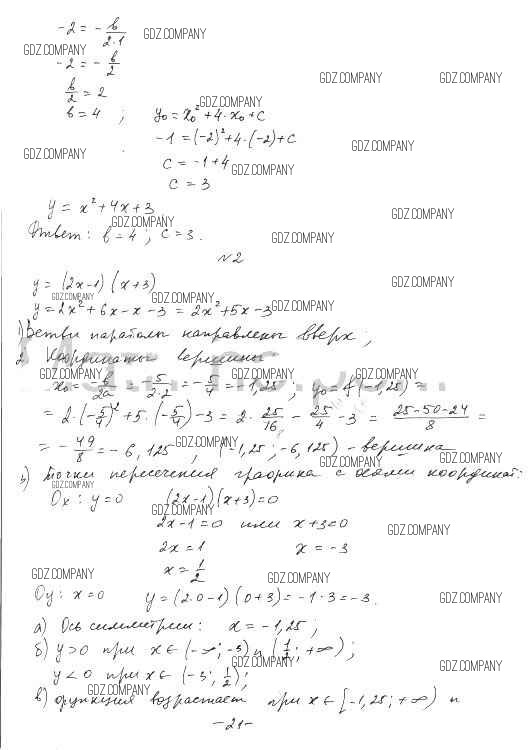 -2 = - b/(2·1) GDZ.COMPANY
GDZ.COMPANY
-2 = - b/2
GDZ.COMPANY GDZ.COMPANY
b/2 = 2 GDZ.COMPANY
b = 4 ; y₀ = x₀² + 4·x₀ + c
-1 = (-2)² + 4·(-2) + c GDZ.COMPANY
GDZ.COMPANY
c = -1 + 4 GDZ.COMPANY
c = 3
y = x² + 4x + 3 GDZ.COMPANY
GDZ.COMPANY
Ответ: b = 4 ; c = 3. GDZ.COMPANY
№2
y = (2x-1)(x+3) GDZ.COMPANY
GDZ.COMPANY GDZ.COMPANY
y = 2x² + 6x - x - 3 = 2x² + 5x - 3 GDZ.COMPANY
1) Ветви параболы направлены вверх;
2. Координаты вершины
GDZ.COMPANY GDZ.COMPANY GDZ.COMPANY
x₀ = - b/2a = - 5/(2·2) = - 5/4 = -1,25 ; y₀ = f(-1,25) =
= 2·(-5/4)² + 5·(-5/4) - 3 = 2· 25/16 - 25/4 - 3 = (25-50-24)/8 =
= - 49/8 = -6,125 GDZ.COMPANY (-1,25 ; -6,125) - вершина
GDZ.COMPANY
3) Точки пересечения графика с осями координат:
GDZ.COMPANY
Ox: y = 0 (2x-1)(x+3) = 0
GDZ.COMPANY
2x-1 = 0 или x+3 = 0 GDZ.COMPANY
2x = 1 x = -3
x = 1/2
GDZ.COMPANY GDZ.COMPANY
Oy: x = 0 y = (2·0-1)(0+3) = -1·3 = -3. GDZ.COMPANY
а) Ось симметрии: x = -1,25 ;
б) y > 0 при x ∈ (-∞; -3) и (1/2 ; +∞) ;
GDZ.COMPANY GDZ.COMPANY
y < 0 при x ∈ (-3; 1/2) ;
GDZ.COMPANY
в) функция возрастает при x ∈ [-1,25 ; +∞) и
-21-